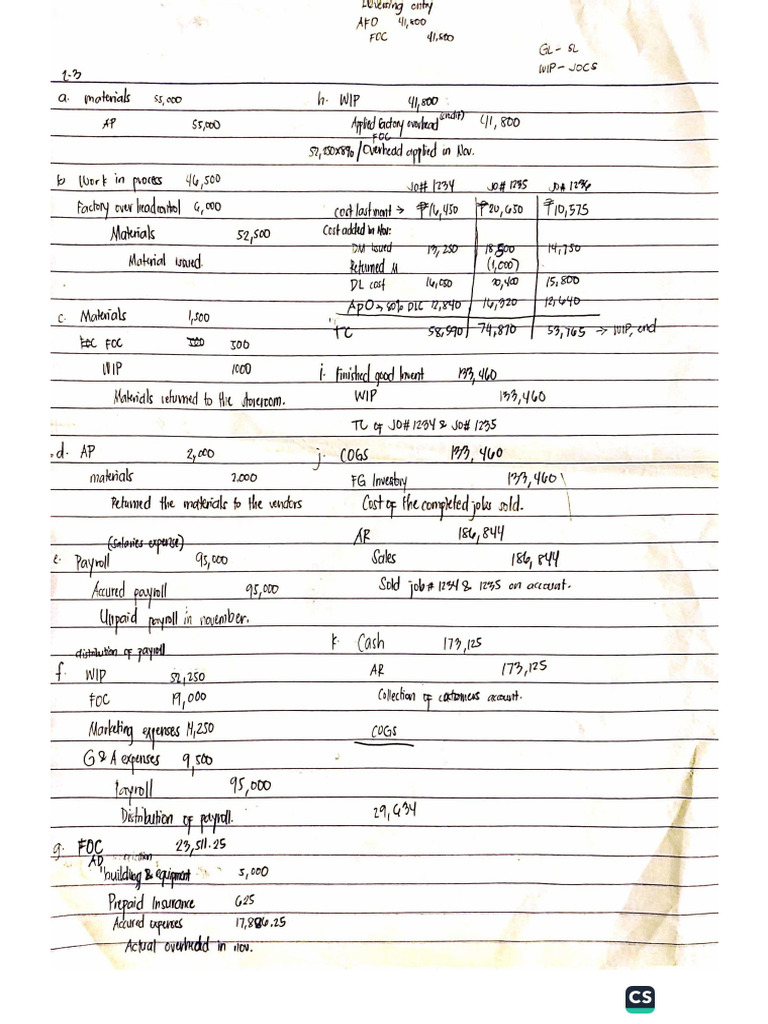 Reversing entry
AFO 41,800
FOC 41,800
GL - SL
WIP - JOCS
1-3
a. materials 55,000
AP 55,000
b Work in process 46,500
Factory over head control 6,000
Materials 52,500
Material issued.
c. Materials 1,500
FOC 500
WIP 1000
Materials returned to the storeroom.
d. AP 2,000
materials 2.000
Returned the materials to the vendors
(salaries expense)
e. Payroll 95,000
Accured payroll 95,000
Unpaid payroll in november.
distribution of payroll
f. WIP 52,250
FOC 19,000
Marketing expenses 14,250
G & A expenses 9,500
Payroll 95,000
Distribution of payroll.
g. FOC 23,511.25
AD
building & equipment 5,000
Prepaid Insurance 625
Accured expenses 17,886.25
Actual overhead in nov.
h. WIP 41,800
Applied factory overhead (credit) 41,800
FOC
52,250x8% / Overhead applied in Nov.
JO# 1234 JO# 1235 JO# 1236
Cost last mont → ₱16,450 ₱20,650 ₱10,575
Cost added in Nov:
DM issued 13,250 18,500 14,750
Returned M (1,000)
DL cost 16,050 20,400 15,800
ApO → 80% DLC 12,840 16,320 12,640
TC 58,590 74,870 53,765 → WIP, end
i. Finished good Invent 133,460
WIP 133,460
TC of JO# 1234 & JO# 1235
j. COGS 133,460
FG Inventory 133,460
Cost of the completed jobs sold.
AR 186,844
Sales 186,844
Sold job # 1234 & 1235 on account.
k. Cash 173,125
AR 173,125
Collection of customers account.
COGS
29,634
CS